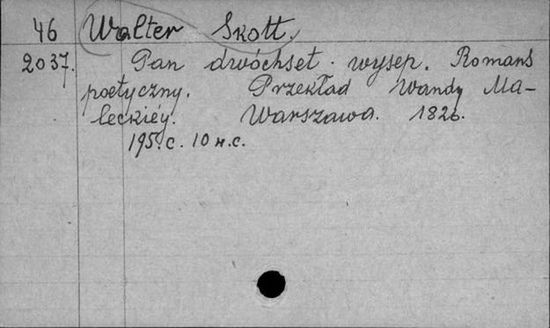 46 Walter Skott.
2037. Pan dwóchset wysep. Romans
poetyczny. Przekład Wandy Ma-
leckiéy. Warszawa. 1826.
195. с. 10 н.с.